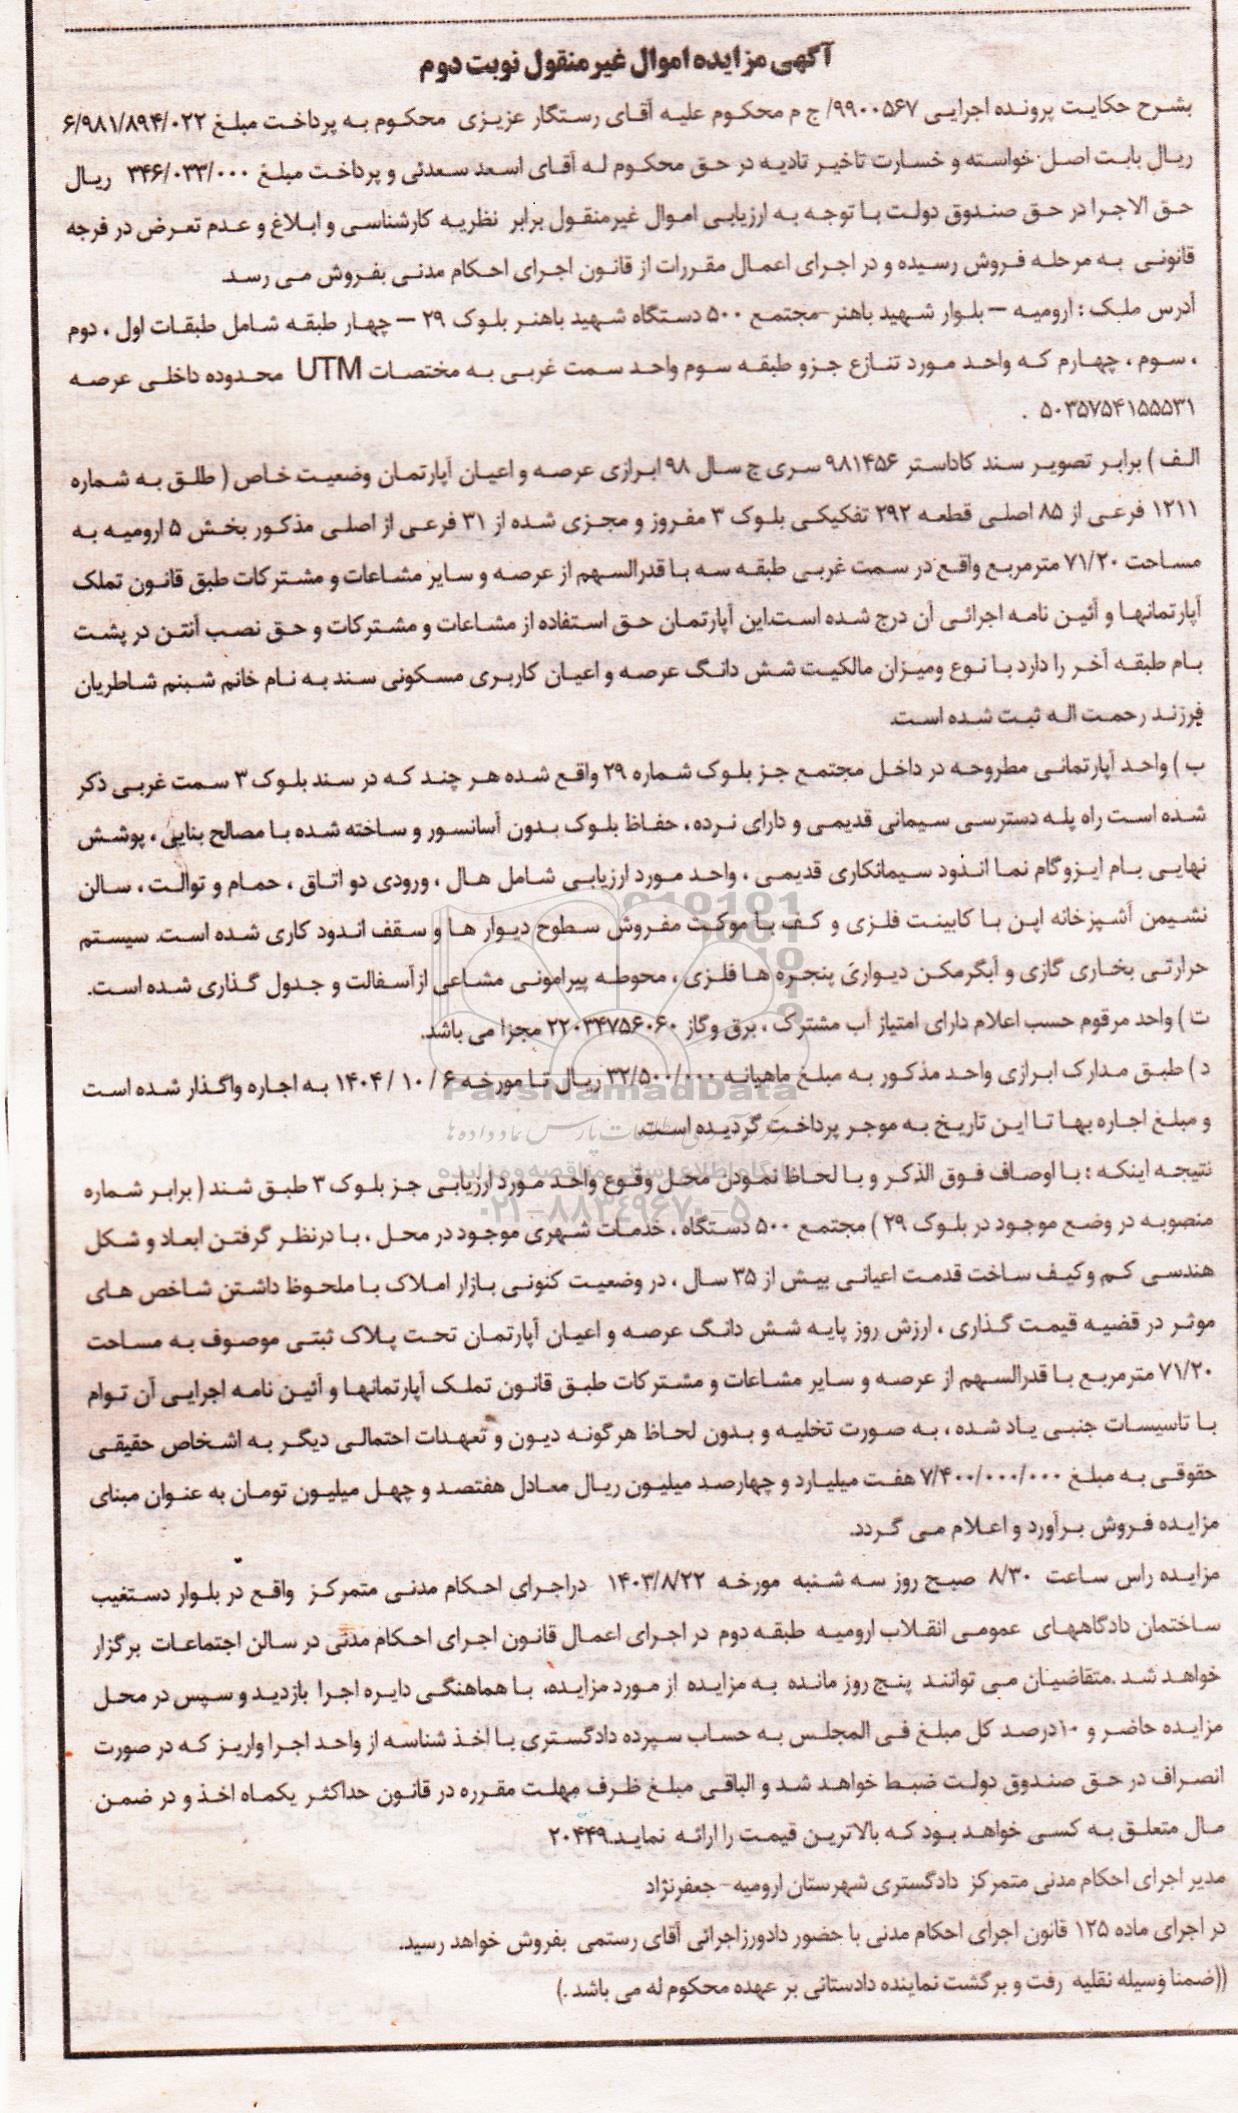 آگهی مزایده اموال غیر منقول نوبت دوم
بشرح حکایت پرونده اجرایی ۹۹۰۰۵۶۷/ ج م محکوم علیه آقای رستگار عزیزی محکوم به پرداخت مبلغ ۶/۹۸۱/۸۹۴/۰۲۲
ریال بابت اصل خواسته و خسارت تاخیر تادیه در حق محکوم له آقای اسعد سعدئی و پرداخت مبلغ ۳۴۶/۰۳۳/۰۰۰ ریال
حق الاجرا در حق صندوق دولت با توجه به ارزیابی اموال غیرمنقول برابر نظریه کارشناسی و ابلاغ و عدم تعرض در فرجه
قانونی به مرحله فروش رسیده و در اجرای اعمال مقررات از قانون اجرای احکام مدنی بفروش می رسد.
آدرس ملک : ارومیه – بلوار شهید باهنر-مجتمع ۵۰۰ دستگاه شهید باهنر بلوک ۲۹ – چهار طبقه شامل طبقات اول ، دوم
، سوم ، چهارم که واحد مورد تنازع جزو طبقه سوم واحد سمت غربی به مختصات UTM محدوده داخلی عرصه
۵۰۳۵۷۵۴۱۵۵۵۳۱ .
الف ) برابر تصویر سند کاداستر ۹۸۱۴۵۶ سری ج سال ۹۸ ابرازی عرصه و اعیان آپارتمان وضعیت خاص ( طلق به شماره
۱۲۱۱ فرعی از ۸۵ اصلی قطعه ۲۹۲ تفکیکی بلوک ۳ مفروز و مجزی شده از ۳۱ فرعی از اصلی مذکور بخش ۵ ارومیه به
مساحت ۷۱/۲۰ مترمربع واقع در سمت غربی طبقه سه با قدرالسهم از عرصه و سایر مشاعات و مشترکات طبق قانون تملک
آپارتمانها و آئین نامه اجرائی آن درج شده است.این آپارتمان حق استفاده از مشاعات و مشترکات و حق نصب آنتن در پشت
بام طبقه آخر را دارد با نوع ومیزان مالکیت شش دانگ عرصه و اعیان کاربری مسکونی سند به نام خانم شبنم شاطریان
فرزند رحمت اله ثبت شده است.
ب ) واحد آپارتمانی مطروحه در داخل مجتمع جز بلوک شماره ۲۹ واقع شده هر چند که در سند بلوک ۳ سمت غربی ذکر
شده است راه پله دسترسی سیمانی قدیمی و دارای نرده ، حفاظ بلوک بدون آسانسور و ساخته شده با مصالح بنایی ، پوشش
نهایی بام ایزوگام نما اندود سیمانکاری قدیمی ، واحد مورد ارزیابی شامل هال ، ورودی دو اتاق ، حمام و توالت ، سالن
نشیمن آشپزخانه اپن با کابینت فلزی و کف با موکت مفروش سطوح دیوار ها و سقف اندود کاری شده است. سیستم
حرارتی بخاری گازی و آبگرمکن دیواری پنجره ها فلزی ، محوطه پیرامونی مشاعی ازآسفالت و جدول گذاری شده است.
ت ) واحد مرقوم حسب اعلام دارای امتیاز آب مشترک ، برق وگاز ۲۲۰۳۴۷۵۶۰۶۰ مجزا می باشد.
د ) طبق مدارک ابرازی واحد مذکور به مبلغ ماهیانه ۳۲/۵۰۰/۰۰۰ ریال تا مورخه ۶ / ۱۰ / ۱۴۰۴ به اجاره واگذار شده است
و مبلغ اجاره بها تا این تاریخ به موجر پرداخت گردیده است.
نتیجه اینکه : با اوصاف فوق الذکر و با لحاظ نمودن محل وقوع واحد مورد ارزیابی جز بلوک ۳ طبق شند ( برابر شماره
منصوبه در وضع موجود در بلوک ۲۹ ) مجتمع ۵۰۰ دستگاه ، خدمات شهری موجود در محل ، با درنظر گرفتن ابعاد و شکل
هندسی کم وکیف ساخت قدمت اعیانی بیش از ۳۵ سال ، در وضعیت کنونی بازار املاک با ملحوظ داشتن شاخص های
موثر در قضیه قیمت گذاری ، ارزش روز پایه شش دانگ عرصه و اعیان آپارتمان تحت پلاک ثبتی موصوف به مساحت
۷۱/۲۰ مترمربع با قدرالسهم از عرصه و سایر مشاعات و مشترکات طبق قانون تملک آپارتمانها و آئین نامه اجرایی آن توام
با تاسیسات جنبی یاد شده ، به صورت تخلیه و بدون لحاظ هرگونه دیون و تعهدات احتمالی دیگر به اشخاص حقیقی
حقوقی به مبلغ ۷/۴۰۰/۰۰۰/۰۰۰ هفت میلیارد و چهارصد میلیون ریال معادل هفتصد و چهل میلیون تومان به عنوان مبنای
مزایده فروش برآورد و اعلام می گردد.
مزایده راس ساعت ۸/۳۰ صبح روز سه شنبه مورخه ۱۴۰۳/۸/۲۲ دراجرای احکام مدنی متمرکز واقع در بلوار دستغیب
ساختمان دادگاههای عمومی انقلاب ارومیه طبقه دوم در اجرای اعمال قانون اجرای احکام مدنی در سالن اجتماعات برگزار
خواهد شد .متقاضیان می توانند پنج روز مانده به مزایده از مورد مزایده، با هماهنگی دایره اجرا بازدید و سپس در محل
مزایده حاضر و ۱۰درصد کل مبلغ فی المجلس به حساب سپرده دادگستری با اخذ شناسه از واحد اجرا واریز که در صورت
انصراف در حق صندوق دولت ضبط خواهد شد و الباقی مبلغ ظرف مهلت مقرره در قانون حداکثر یکماه اخذ و در ضمن
مال متعلق به کسی خواهد بود که بالاترین قیمت را ارائه نماید.۲۰۴۴۹
مدیر اجرای احکام مدنی متمرکز دادگستری شهرستان ارومیه- جعفرنژاد
در اجرای ماده ۱۲۵ قانون اجرای احکام مدنی با حضور دادورزاجرائی آقای رستمی بفروش خواهد رسید.
((ضمنا وسیله نقلیه رفت و برگشت نماینده دادستانی بر عهده محکوم له می باشد .)
ParsNamadData
پایگاه اطلاع رسانی مناقصه و مزایده
۰۲۱-۸۸۳۴۹۶۷۰-۵